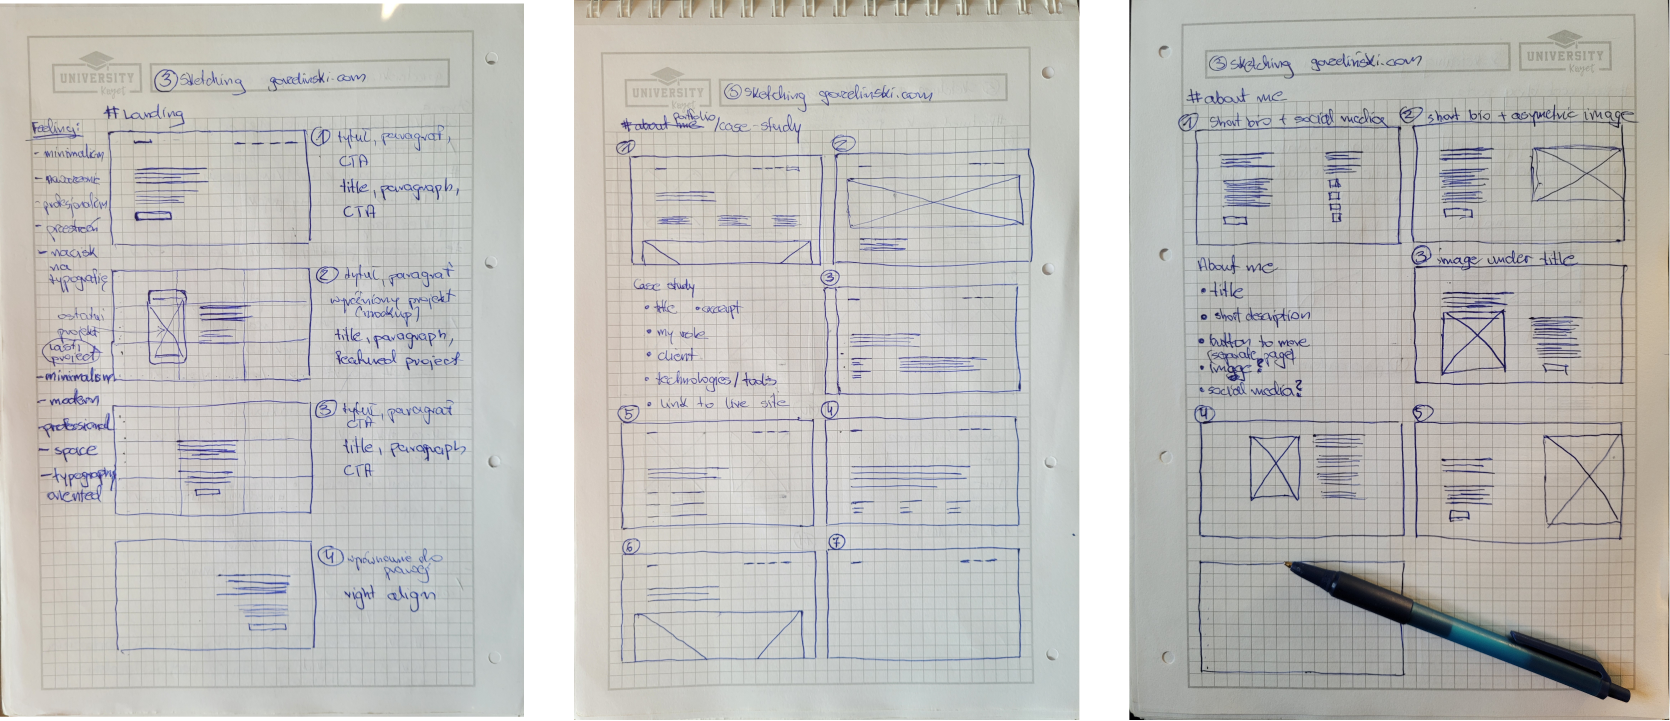 UNIVERSITY
③ Sketching gozdzinski.com
# Landing
Feelings:
- minimalizm
- profesjonalizm
- przestrzeń
- nacisk
na
typografię
ostatni
projekt
last
project
- minimalism
- modern
- professional
- space
- typography
oriented
① tytuł, paragraf,
CTA
title, paragraph,
CTA
② tytuł, paragraf
wyróżniony projekt
(mockup)
title, paragraph,
featured project
③ tytuł, paragraf
CTA
title, paragraph
CTA
④ wyrównanie do
prawej
right align
UNIVERSITY
③ sketching gozdzinski.com
portfolio
# about me /case-study
①
②
Case study
• title • excerpt
• my role
• client
• technologies/tools
• link to live site
③
⑤
④
⑥
⑦
③ sketching gozdzinski.com
UNIVERSITY
# about me
① short bio + social media
② short bio + asymetric image
About me
• title
• short description
• button to more
(separate page)
• image?
• social media?
③ image under title
④
⑤